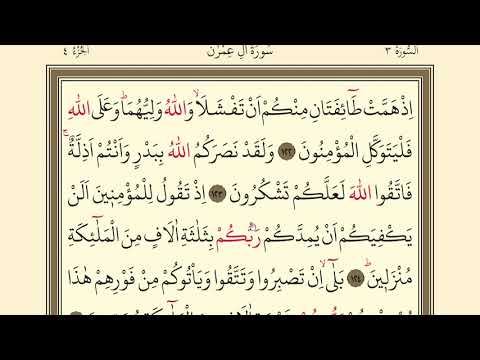 السُّورَةُ ٣ سُورَةُ اٰلِ عِمْرٰنَ اَلْجُزْءُ ٤
اِذْ هَمَّتْ طَٓائِفَتَانِ مِنْكُمْ اَنْ تَفْشَلَاۙ وَاللّٰهُ وَلِيُّهُمَاۜ وَعَلَى اللّٰهِ
فَلْيَتَوَكَّلِ الْمُؤْمِنُونَ ﴿١٢٢﴾ وَلَقَدْ نَصَرَكُمُ اللّٰهُ بِبَدْرٍ وَاَنْتُمْ اَذِلَّةٌۚ
فَاتَّقُوا اللّٰهَ لَعَلَّكُمْ تَشْكُرُونَ ﴿١٢٣﴾ اِذْ تَقُولُ لِلْمُؤْمِنٖينَ اَلَنْ
يَكْفِيَكُمْ اَنْ يُمِدَّكُمْ رَبُّكُمْ بِثَلٰثَةِ اٰلَافٍ مِنَ الْمَلٰٓئِكَةِ
مُنْزَلٖينَۜ ﴿١٢٤﴾ بَلٰٓىۙ اِنْ تَصْبِرُوا وَتَتَّقُوا وَيَاْتُوكُمْ مِنْ فَوْرِهِمْ هٰذَا